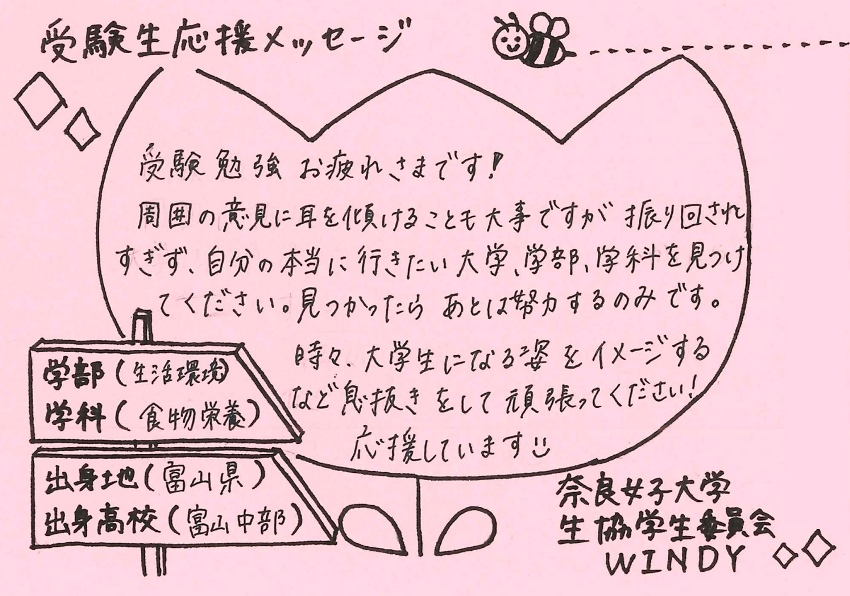 受験生応援メッセージ
受験勉強 お疲れさまです!
周囲の意見に耳を傾けることも大事ですが 振り回され
すぎず、自分の本当に行きたい大学、学部、学科を見つけ
てください。見つかったら あとは努力するのみです。
時々、大学生になる姿をイメージする
など息抜きをして頑張ってください!
応援しています
学部(生活環境)
学科(食物栄養)
出身地(富山県)
出身高校(富山中部)
奈良女子大学
生協学生委員会
WINDY